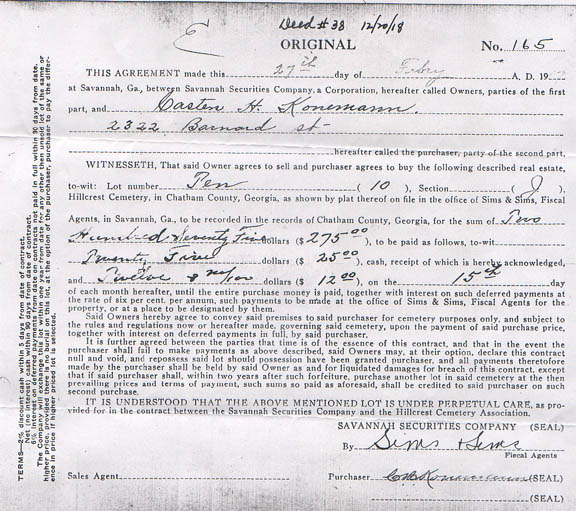 Deed # 38 12/20/18
E
ORIGINAL
No. 165
THIS AGREEMENT made this 27th day of Febry A. D. 19
at Savannah, Ga., between Savannah Securities Company, a Corporation, hereafter called Owners, parties of the first
part, and Casten H. Konemann.
2322 Barnard st
hereafter called the purchaser, party of the second part,
WITNESSETH, That said Owner agrees to sell and purchaser agrees to buy the following described real estate,
to-wit: Lot number Ten ( 10 ), Section ( J ),
Hillcrest Cemetery, in Chatham County, Georgia, as shown by plat thereof on file in the office of Sims & Sims, Fiscal
Agents, in Savannah, Ga., to be recorded in the records of Chatham County, Georgia, for the sum of Two
Hundred Seventy Five dollars ($ 275 00 ), to be paid as follows, to-wit
Twenty Five dollars ($ 25 00 ), cash, receipt of which is hereby acknowledged,
and Twelve & no/00 dollars ($ 12 00 ), on the 15th day
of each month hereafter, until the entire purchase money is paid, together with interest on such deferred payments at
the rate of six per cent. per annum, such payments to be made at the office of Sims & Sims, Fiscal Agents for the
property, or at a place to be designated by them.
Said Owners hereby agree to convey said premises to said purchaser for cemetery purposes only, and subject to
the rules and regulations now or hereafter made, governing said cemetery, upon the payment of said purchase price,
together with interest on deferred payments in full, by said purchaser.
It is further agreed between the parties that time is of the essence of this contract, and that in the event the
purchaser shall fail to make payments as above described, said Owners may, at their option, declare this contract
null and void, and repossess said lot should possession have been granted purchaser, and all payments theretofore
made by the purchaser shall be held by said Owner as and for liquidated damages for breach of this contract, except
that if said purchaser shall, within two years after such forfeiture, purchase another lot in said cemetery at the then
prevailing prices and terms of payment, such sums so paid as aforesaid, shall be credited to said purchaser on such
second purchase.
IT IS UNDERSTOOD THAT THE ABOVE MENTIONED LOT IS UNDER PERPETUAL CARE, as pro-
vided for in the contract between the Savannah Securities Company and the Hillcrest Cemetery Association.
SAVANNAH SECURITIES COMPANY (SEAL)
By Sims & Sims
Fiscal Agents
Sales Agent
Purchaser C H Konemann (SEAL)
(SEAL)
TERMS—2% discount cash within 5 days from date of contract.
Net (no interest), cash within 90 days from date of contract.
6% interest on deferred payments from date on contracts not paid in full within 90 days from date.
The Company will exchange this lot within one year from date for any other then unsold lot of the same or
higher price, provided there is no burial on this lot at the option of the purchaser, purchaser to pay the differ-
ence in price if higher priced lot is selected.